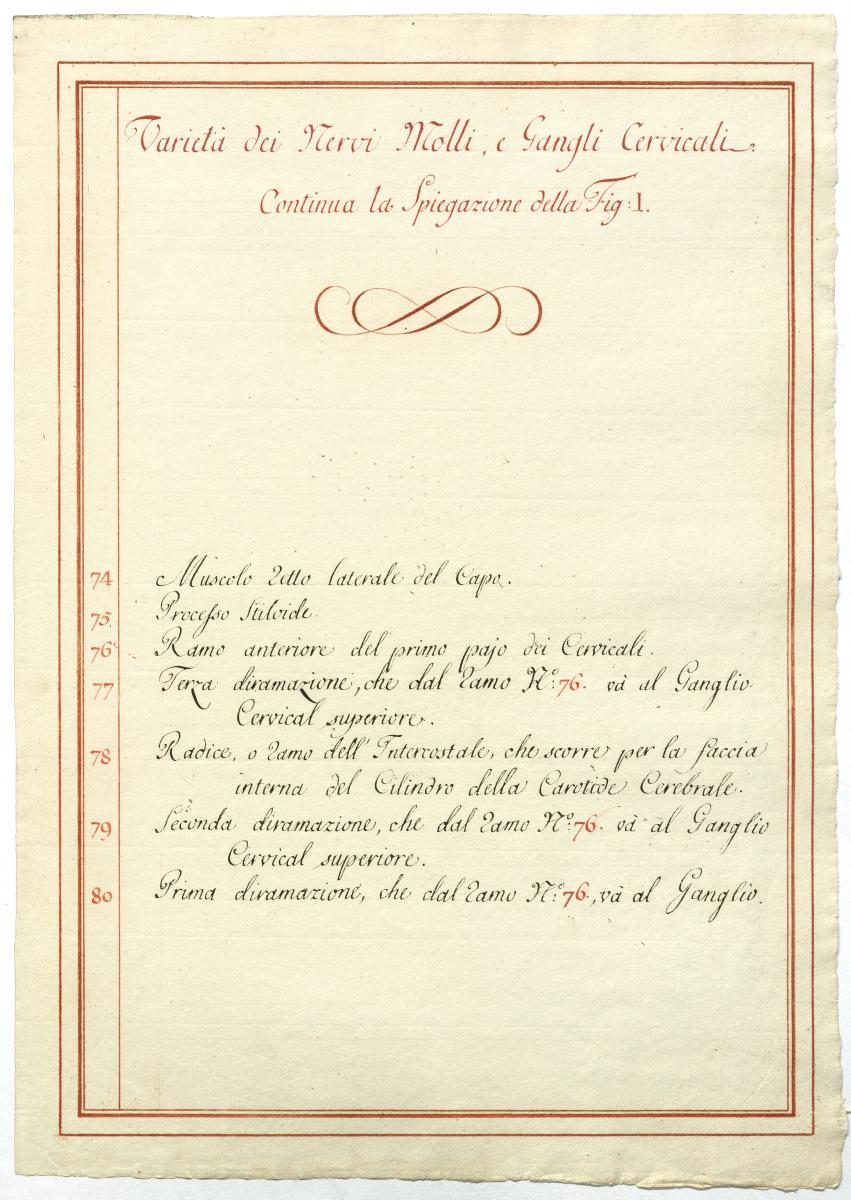 Varietà dei Nervi Molli, e Gangli Cervicali.
Continua la Spiegazione della Fig: 1.
74 Muscolo Retto laterale del Capo.
75. Processo Stiloide.
76 Ramo anteriore del primo pajo dei Cervicali.
77 Terza diramazione, che dal Ramo N.º 76. và al Ganglio
Cervical superiore.
78 Radice, o Ramo dell' Intercostale, che scorre per la faccia
interna del Cilindro della Carotide Cerebrale.
79 Seconda diramazione, che dal Ramo N.º 76. và al Ganglio
Cervical superiore.
80 Prima diramazione, che dal Ramo N.º 76., và al Ganglio.